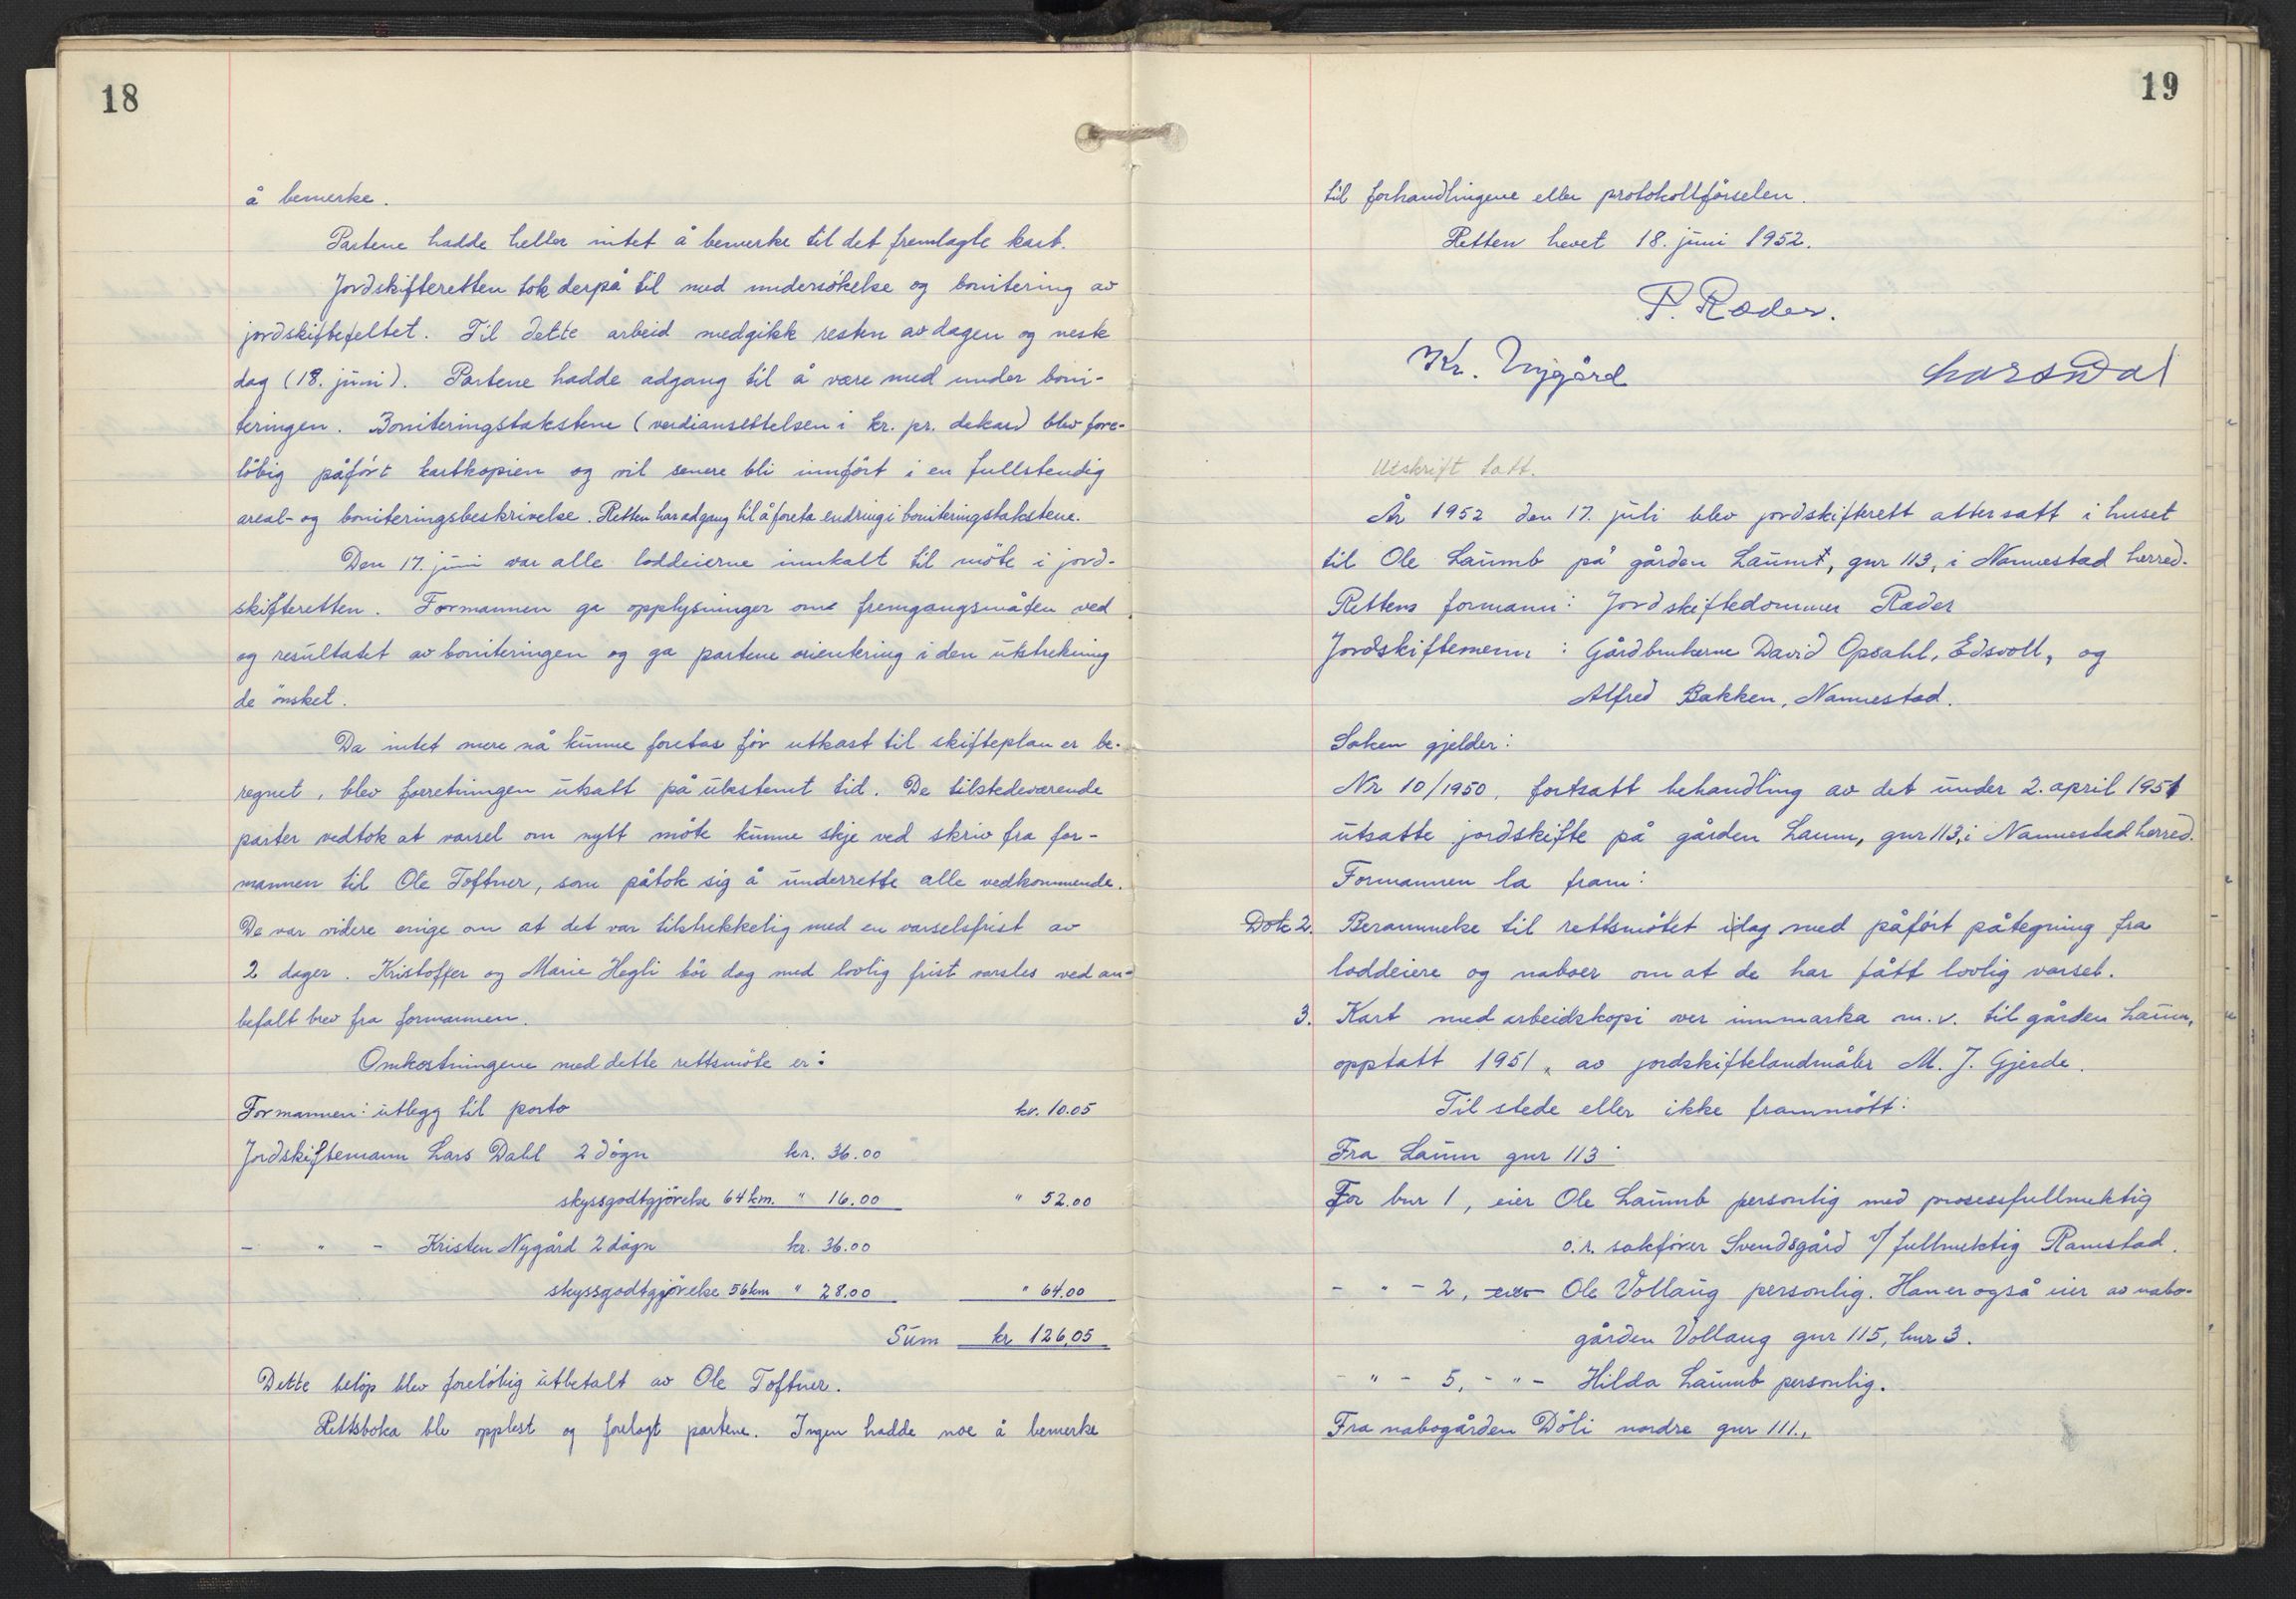 18
å bemerke.
Partene hadde heller intet å bemerke til det fremlagte kart.
Jordskifteretten tok derpå til med undersökelse og bonitering av
jordskiftefeltet. Til dette arbeid medgikk resten av dagen og neste
dag (18. juni). Partene hadde adgang til å være med under boni-
teringen. Boniteringstakstene (verdiansettelsen i kr. pr. dekar) blev fore-
löbig påfört kartkopien og vil senere bli innfört i en fullstendig
areal- og boniteringsbeskrivelse. Retten har adgang til å foreta endring i boniteringstakstene.
Den 17. juni var alle loddeierne innkalt til möte i jord-
skifteretten. Formannen ga opplysninger om fremgangsmåten ved
og resultatet av boniteringen og ga partene orientering i den utstrekning
de önsket.
Da intet mere nå kunne foretas för utkast til skifteplan er be-
regnet, blev forretningen utsatt på ubestemt tid. De tilstedeværende
parter vedtok at varsel om nytt möte kunne skje ved skriv fra for-
mannen til Ole Toftner, som påtok sig å underrette alle vedkommende.
De var videre enige om at det var tilstrekkelig med en varselsfrist av
2 dager. Kristoffer og Marie Hegli bör dog med lovlig frist varsles ved an-
befalt brev fra formannen.
Omkostningene med dette rettsmöte er:
Formannen: utlegg til porto kr. 10.05
Jordskiftemann Lars Dahl 2 dögn kr. 36.00
skyssgodtgjörelse 64 km. " 16.00 " 52.00
- " - Kristen Nygård 2 dögn kr. 36.00
skyssgodtgjörelse 56 km " 28.00 " 64.00
Sum kr 126.05
Dette belöp blev forelöbig utbetalt av Ole Toftner.
Rettsboka ble opplest og forelagt partene. Ingen hadde noe å bemerke
19
til forhandlingene eller protokollförselen.
Retten hevet 18. juni 1952.
P. Ræder.
Kr. Nygård Lars Dal
Utskrift tatt.
År 1952 den 17. juli blev jordskifterett atter satt i huset
til Ole Laumb på gården Laumt, gnr 113, i Nannestad herred.
Rettens formann: Jordskiftedommer Ræder
Jordskiftemenn: Gårdbrukerne David Opsahl, Eidsvoll, og
Alfred Bakken, Nannestad.
Saken gjelder:
Nr 10/1950, fortsatt behandling av det under 2. april 1951
utsatte jordskifte på gården Laum, gnr 113, i Nannestad herred.
Formannen la fram:
Dok 2. Berammelse til rettsmötet idag med påfört påtegning fra
loddeiere og naboer om at de har fått lovlig varsel.
3. Kart med arbeidskopi over innmarka m.v. til gården Laum,
opptatt 1951, av jordskiftelandmåler M. J. Gjerde.
Til stede eller ikke frammött:
Fra Laum gnr 113:
For bnr 1, eier Ole Laumb personlig med prosessfullmektig
o.r. sakförer Svendsgård v/ fullmektig Ramstad.
- " - 2, eier Ole Vollaug personlig. Han er også eier av nabo-
gården Vollaug gnr 115, bnr 3.
- " - 5, - " - Hilda Laumb personlig.
Fra nabogården Döli nordre gnr 111.,